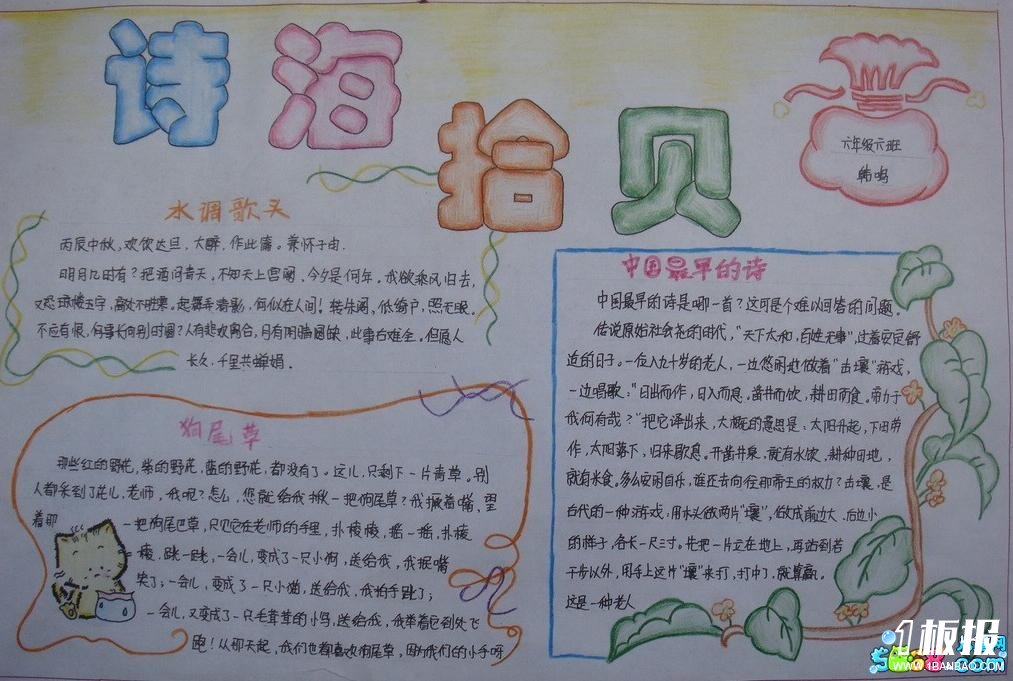 诗海
拾贝
六年级六班
韩鸣
水调歌头
丙辰中秋,欢饮达旦,大醉,作此篇。兼怀子由.
明月几时有?把酒问青天,不知天上宫阙,今夕是何年。我欲乘风归去,
又恐琼楼玉宇,高处不胜寒。起舞弄清影,何似在人间!转朱阁,低绮户,照无眠。
不应有恨,何事长向别时圆?人有悲欢离合,月有阴晴圆缺,此事古难全。但愿人
长久,千里共蝉娟.
中国最早的诗
中国最早的诗是哪一首?这可是个难以回答的问题。
传说原始社会尧的时代,"天下太和,百姓无事",过着安定舒
适的日子。一位八九十岁的老人,一边悠闲地做着"击壤"游戏,
一边唱歌:"日出而作,日入而息。凿井而饮,耕田而食。帝力于
我何有哉?"把它译出来,大概的意思是:太阳升起,下田劳
作,太阳落下,归来歇息.开凿井泉,就有水饮,耕种田地,
就有米食。多么安闲自乐,谁还去向往那帝王的权力?击壤,是
古代的一种游戏:用木头做两片"壤",做成前边大,后边小
的样子,各长一尺三寸。先把一片立在地上,再站到若
干步以外,用手上这片"壤"来打,打中了,就算赢。
这是一种老人
狗尾草
那些红的野花,紫的野花,蓝的野花,都没有了。这儿,只剩下一片青草。别
人都采到了花儿,老师,我呢?怎么,您就给我揪一把狗尾草?我撅着嘴,望
着那
一把狗尾巴草,只见它在老师的手里,扑棱棱,摇一摇,扑棱
棱,跳一跳,一会儿,变成了一只小狗,送给我,我抿嘴
笑了;一会儿,变成了一只小猫,送给我,我拍手跳了;
一会儿,又变成了一只毛茸茸的小鸟,送给我,我举着它到处飞
跑!从那天起,我们也都喜欢狗尾草,因为我们的小手呀
1板报
WWW.1BANBAO.COM